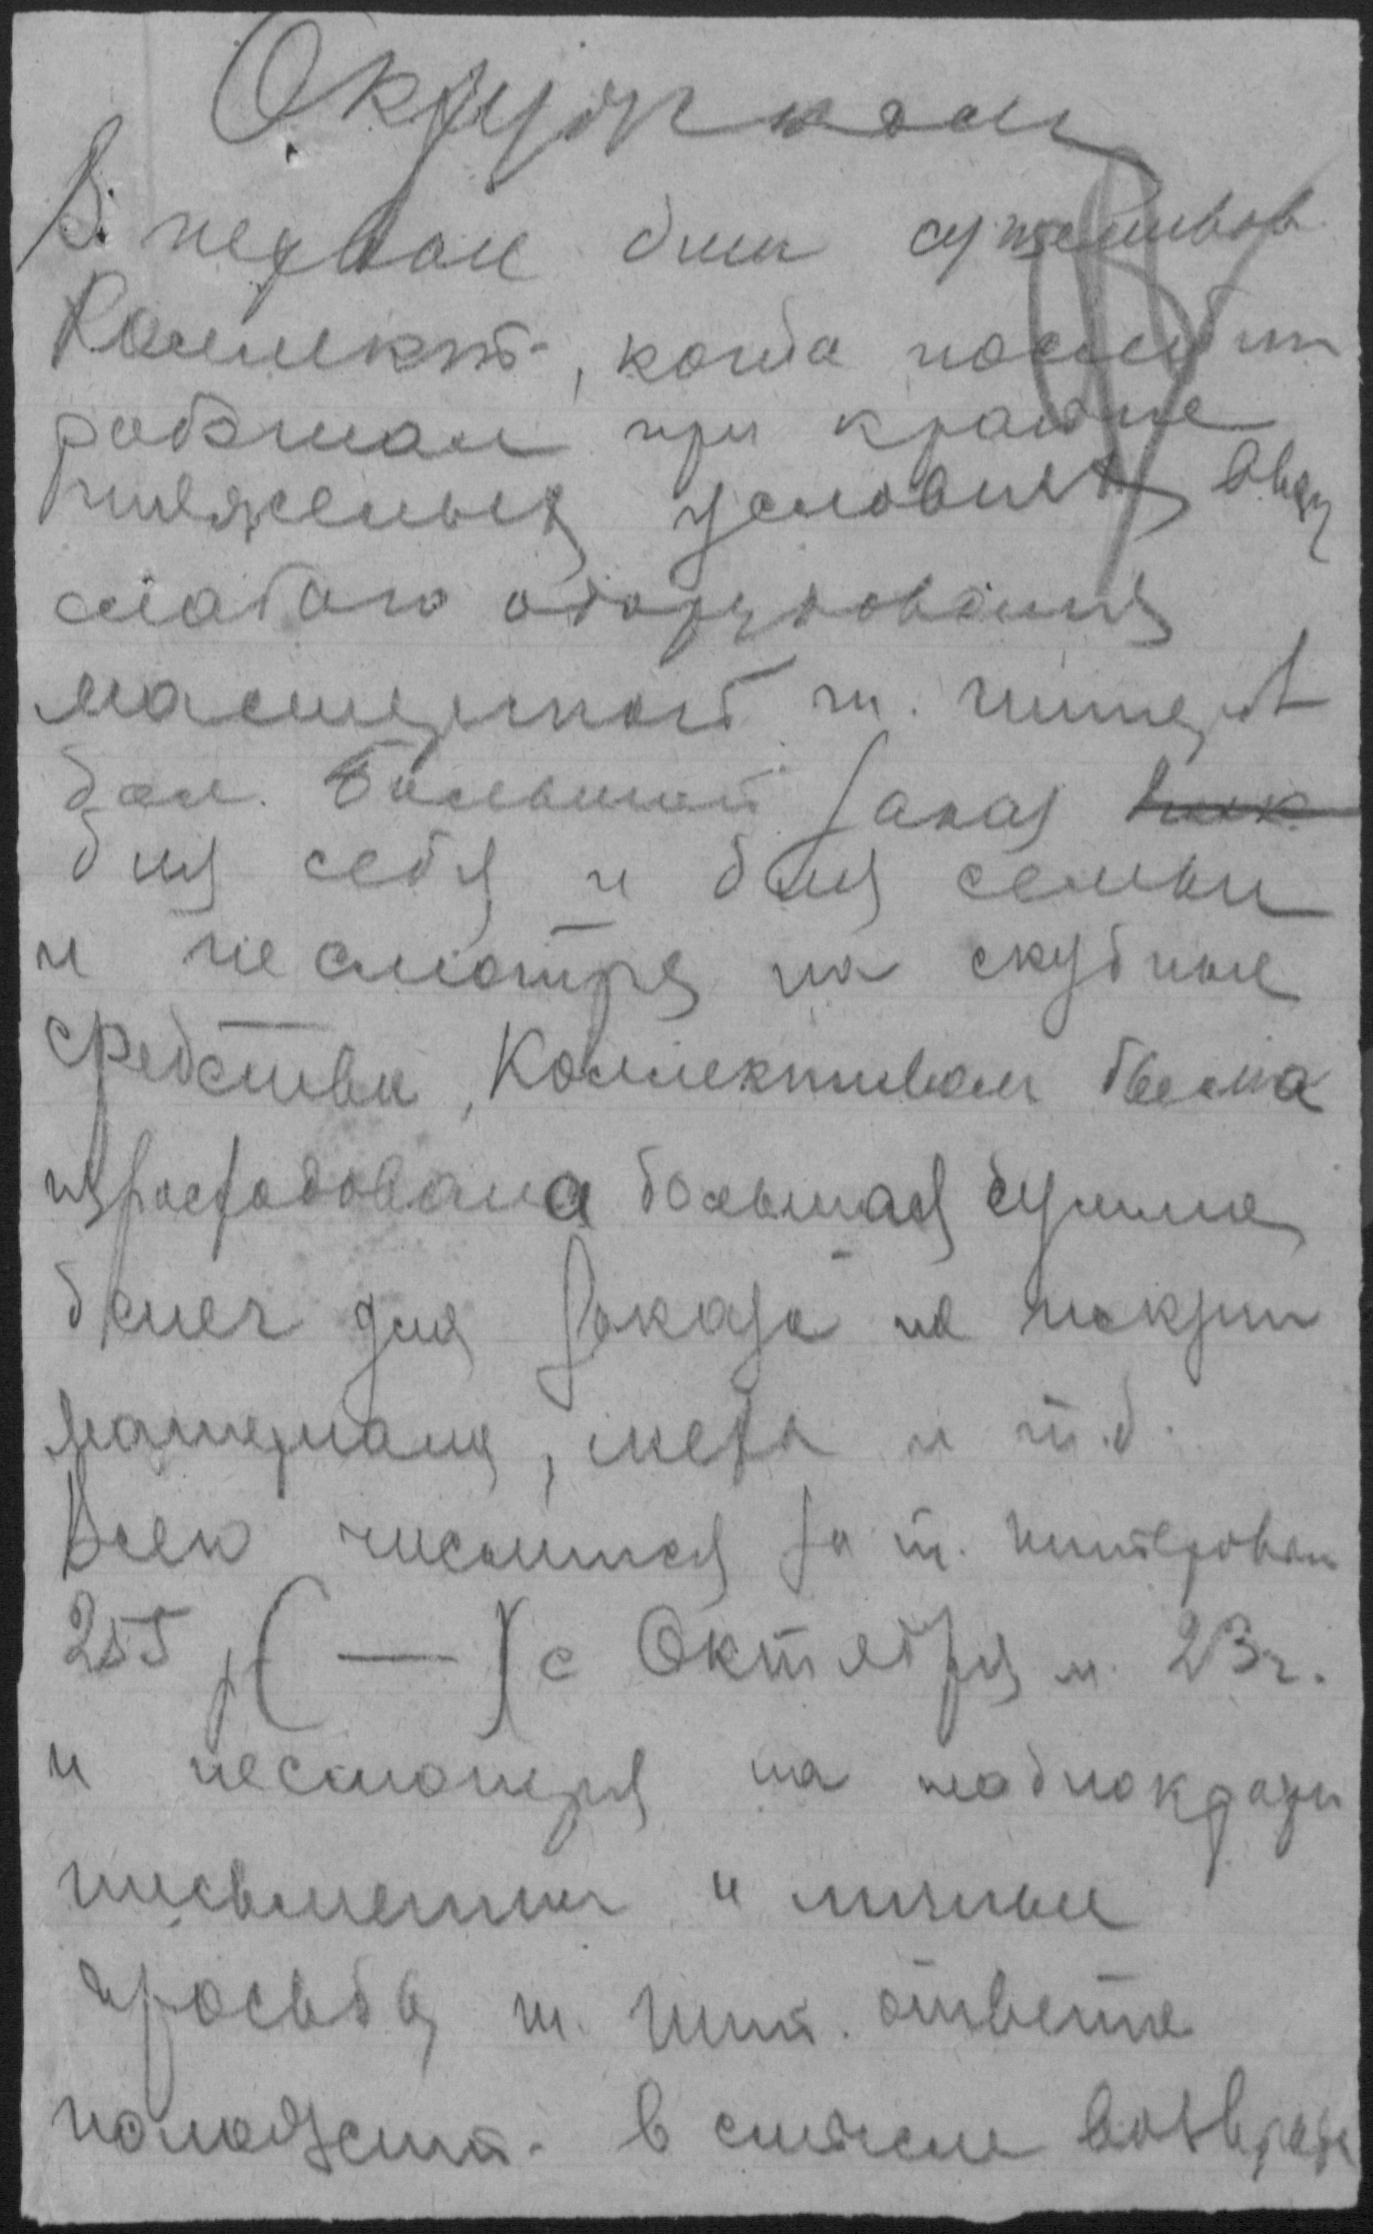 Окружком
В первые дни существов
Коллект-, когда последн
работал при крайне
тяжелых условиях, ввиду
слабого оборудования
мастерской т. Питеров
дал большой заказ
для себя и для семьи
и не смотря на скудные
средства, Коллективом была
израсходована большая сумма
денег для заказа на покупк
материала, меха и т.д.
Всего числится за т. Питеровым
255 р ( — ) с Октября м. 23 г.
и несмотря на неоднократ
письменные и личные
просьбы т. Пит. ответа
положит- в смысле возврата